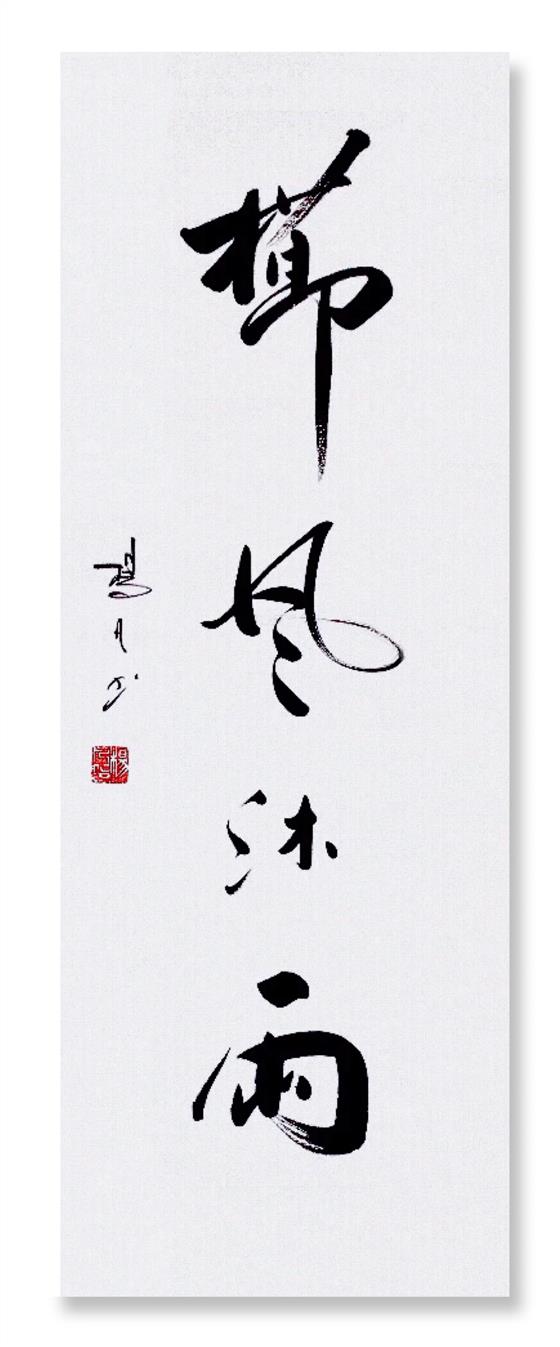 櫛風沐雨